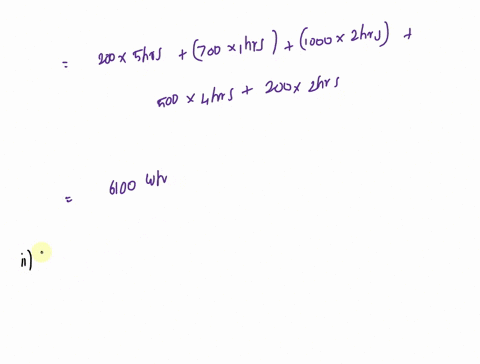 = 200 × 5hrs + (700 × 1hrs) + (1000 × 2hrs) +
500 × 4hrs + 200 × 2hrs
= 6100 Whr
ii)